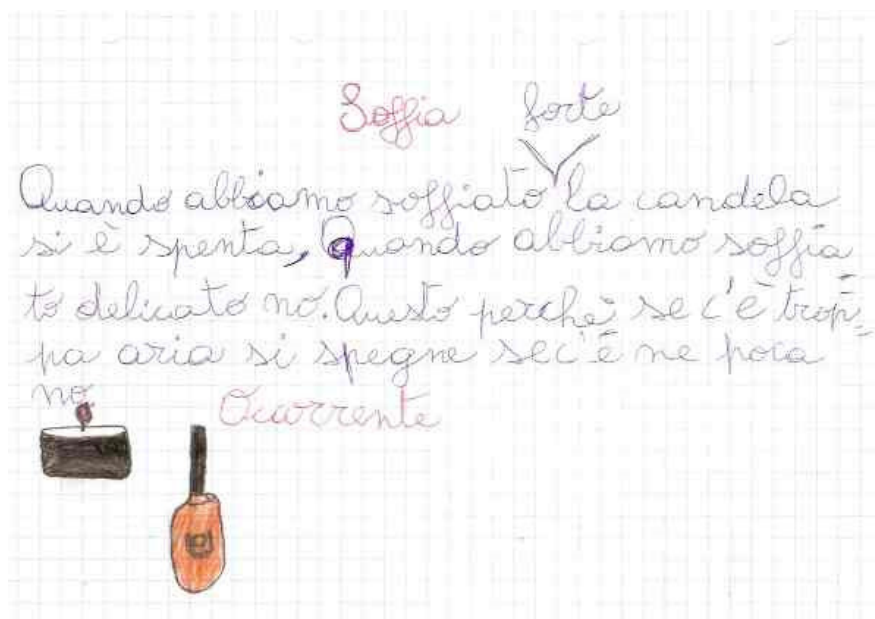 Soffia forte
Quando abbiamo soffiato la candela
si è spenta, quando abbiamo soffia
to delicato no. Questo perché se c'è trop=
pa aria si spegne se c'è ne poca
no.
Ocorrente